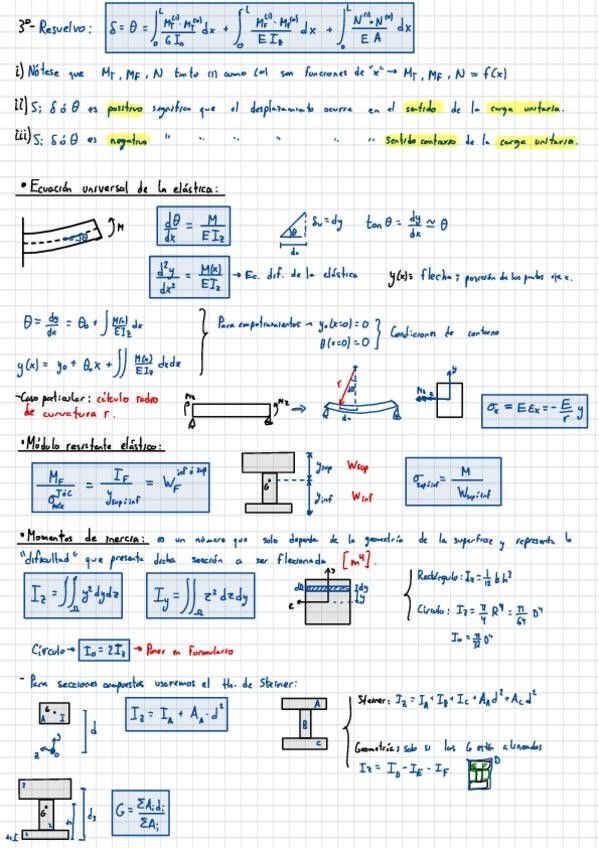 3º- Resuelvo: δ = θ = ∫₀ᴸ M_T⁽¹⁾·M_T⁽⁰⁾/G I₀ dx + ∫₀ᴸ M_F⁽¹⁾·M_F⁽⁰⁾/E I_z dx + ∫₀ᴸ N⁽¹⁾·N⁽⁰⁾/E A dx
i) Nótese que M_T, M_F, N tanto (1) como (0) son funciones de "x" → M_T, M_F, N = f(x)
ii) Si δ ó θ es positivo significa que el desplazamiento ocurre en el sentido de la carga unitaria.
iii) Si δ ó θ es negativo " " " " " " sentido contrario de la carga unitaria.
• Ecuación universal de la elástica:
M
dθ/dx = M/EI_z
θ
dx
δv = dy
tan θ = dy/dx ≃ θ
d²y/dx² = M(x)/EI_z → Ec. dif. de la elástica
y(x) = flecha;
θ = dy/dx = θ₀ + ∫ M(x)/EI_z dx
y(x) = y₀ + θ₀x + ∬ M(x)/EI_z dxdx
Para empotramientos → y₀(x=0) = 0
θ(x=0) = 0
Condiciones de contorno
-Caso particular: cálculo radio
de curvatura r.
M_z
M_z ⇒
r
y
M_z
σx = Eεx = -E/r y
• Módulo resistente elástico:
M_F/σ_máx = I_F/y_sup ó inf = W_F inf ó sup
G
y_sup W_sup
y_inf W_inf
σ_sup ó inf = M/W_sup ó inf
• Momentos de inercia: es un número que solo depende de la geometría de la superficie y representa la
"dificultad" que presenta dicha sección a ser flexionada [m⁴].
I_z = ∬_Ω y² dydz
I_y = ∬_Ω z² dzdy
y
z
dy
y
Rectángulo: I_z = 1/12 b h³
Círculo: I_z = π/4 R⁴ = π/64 D⁴
I₀ = π/32 D⁴
Círculo → I₀ = 2I_z → Poner en formulario
- Para secciones compuestas usaremos el th. de Steiner:
G
A I
d
z
y
I_z = I_A + A_A · d²
A
B
C
Steiner: I_z = I_A + I_B + I_C + A_A d² + A_C d²
Geometría: solo si las G están alineadas
I_z = I_D - I_E - I_F
D
G
d₃
G = ΣA_i d_i/ΣA_i